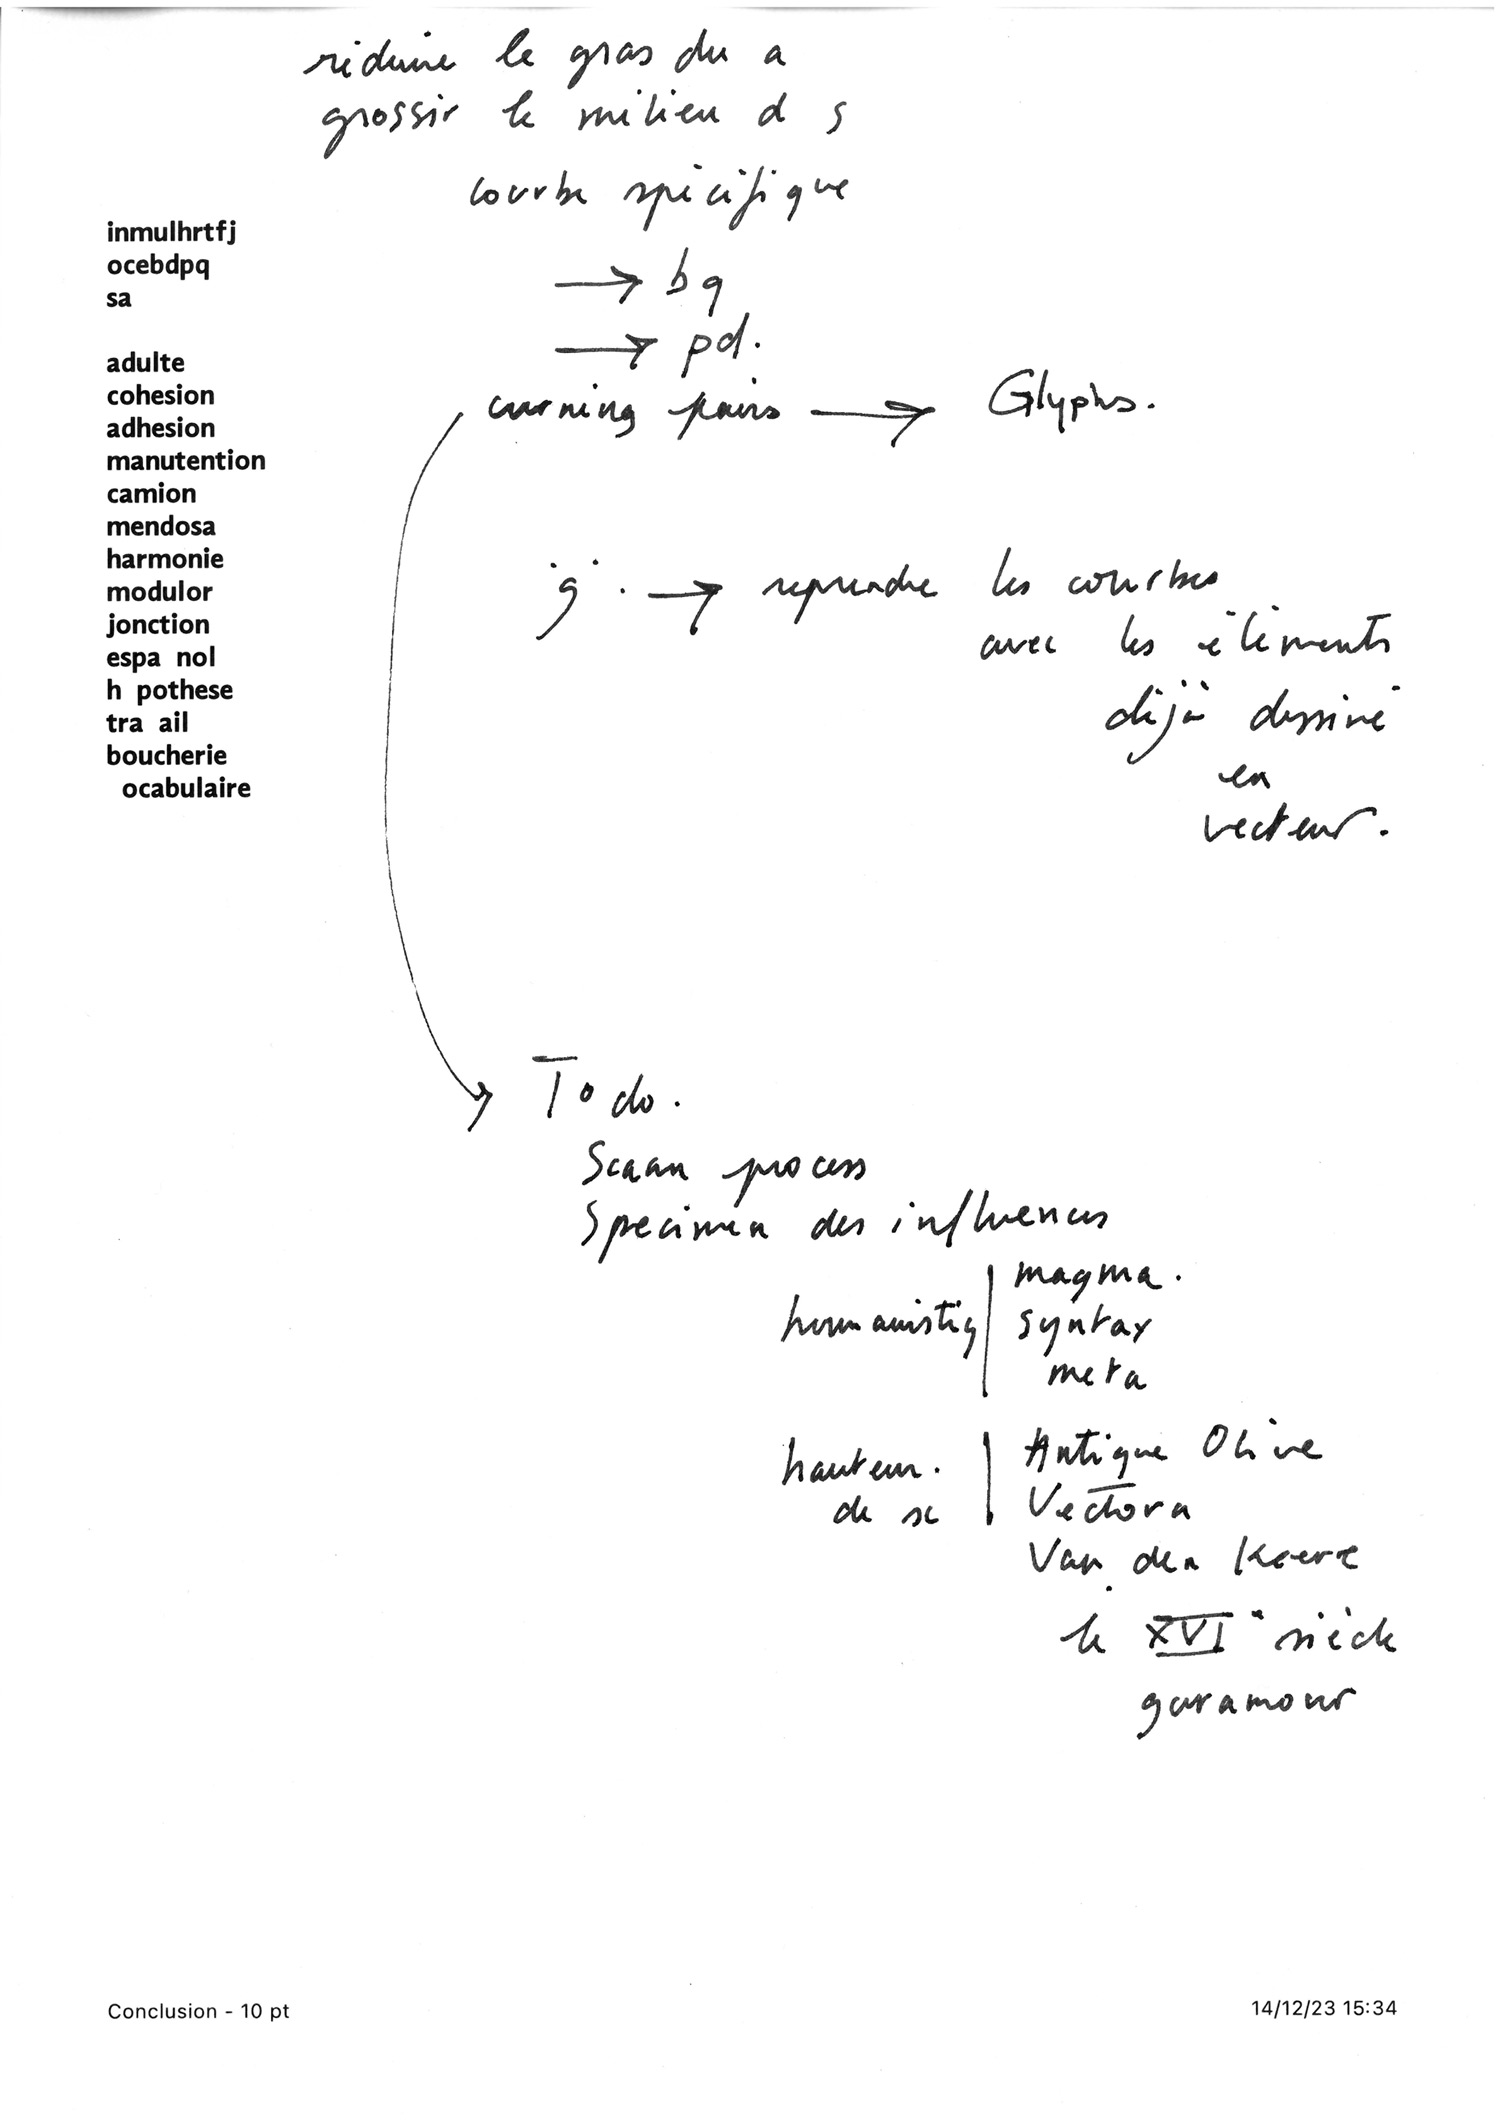 réduire le gras du a
grossir le milieu d s
courbe spécifique
inmulhrtfj
ocebdpq
sa
→ bq
→ pd.
adulte
cohesion
adhesion
manutention
camion
mendosa
harmonie
modulor
jonction
espa nol
h pothese
tra ail
boucherie
ocabulaire
curning pairs → Glyphs.
g. → reprendre les courbes
avec les éléments
déjà dessiné
en
vecteur.
To do.
Scaan process
Specimen des influences
humanistiq
magma.
syntax
meta
hauteur.
de x
Antique Olive
Vectora
Van den Keere
le XVIe siècle
garamour
Conclusion - 10 pt
14/12/23 15:34